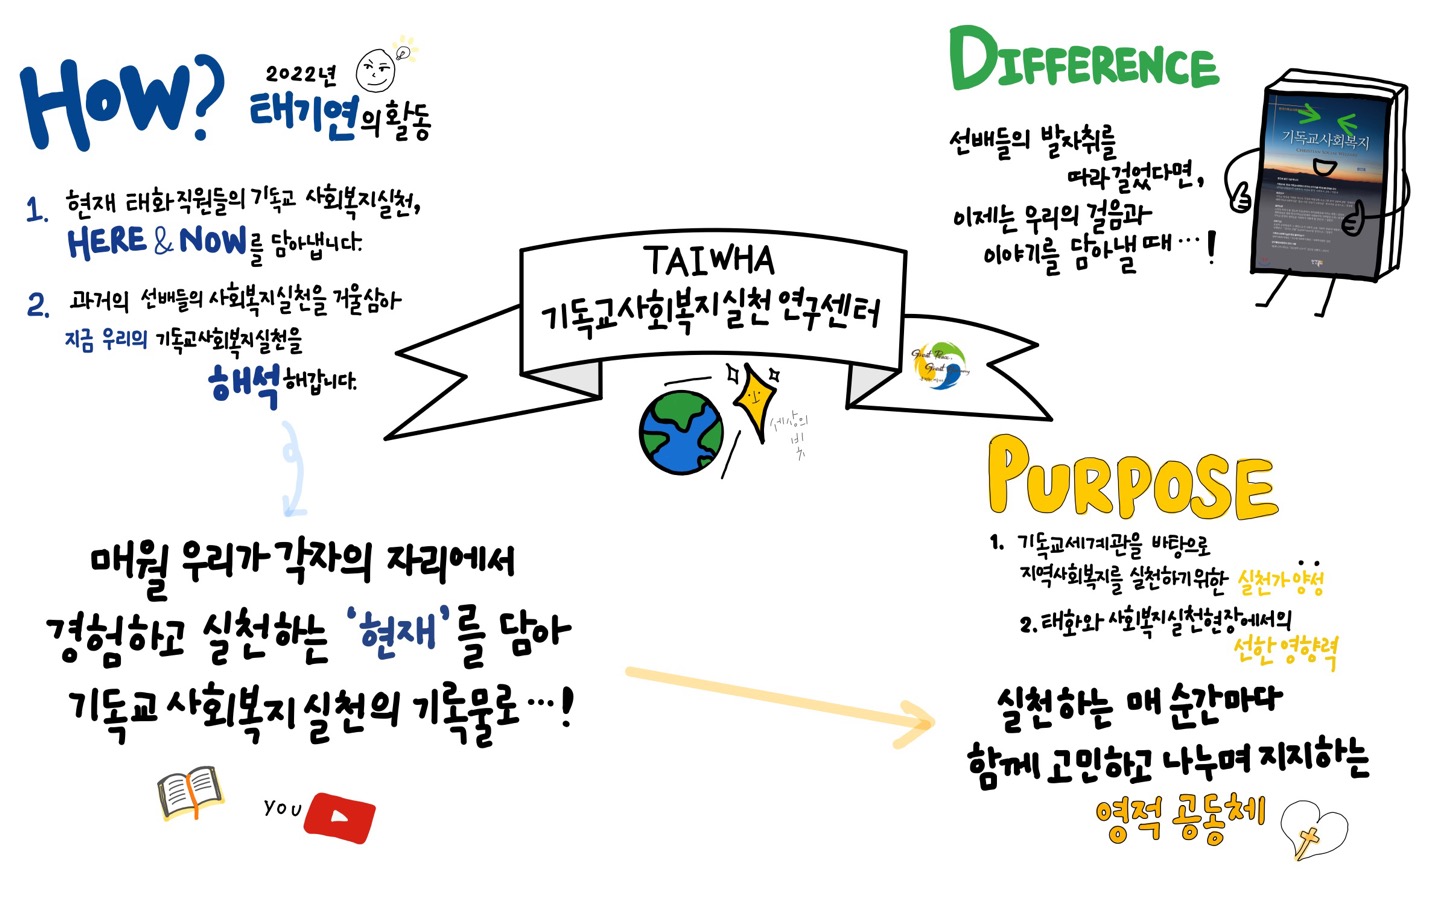 HOW?
2022년
태기연의 활동
1. 현재 태화직원들의 기독교 사회복지실천,
HERE & NOW를 담아냅니다.
2. 과거의 선배들의 사회복지실천을 거울삼아
지금 우리의 기독교사회복지실천을
해석해갑니다.
매월 우리가 각자의 자리에서
경험하고 실천하는 '현재'를 담아
기독교 사회복지 실천의 기록물로…!
YOU
TAIWHA
기독교사회복지실천 연구센터
세상의
빛
DIFFERENCE
선배들의 발자취를
따라 걸었다면,
이제는 우리의 걸음과
이야기를 담아낼 때…!
기독교사회복지
PURPOSE
1. 기독교세계관을 바탕으로
지역사회복지를 실천하기위한 실천가 양성
2. 태화와 사회복지실천현장에서의
선한 영향력
실천하는 매 순간마다
함께 고민하고 나누며 지지하는
영적 공동체